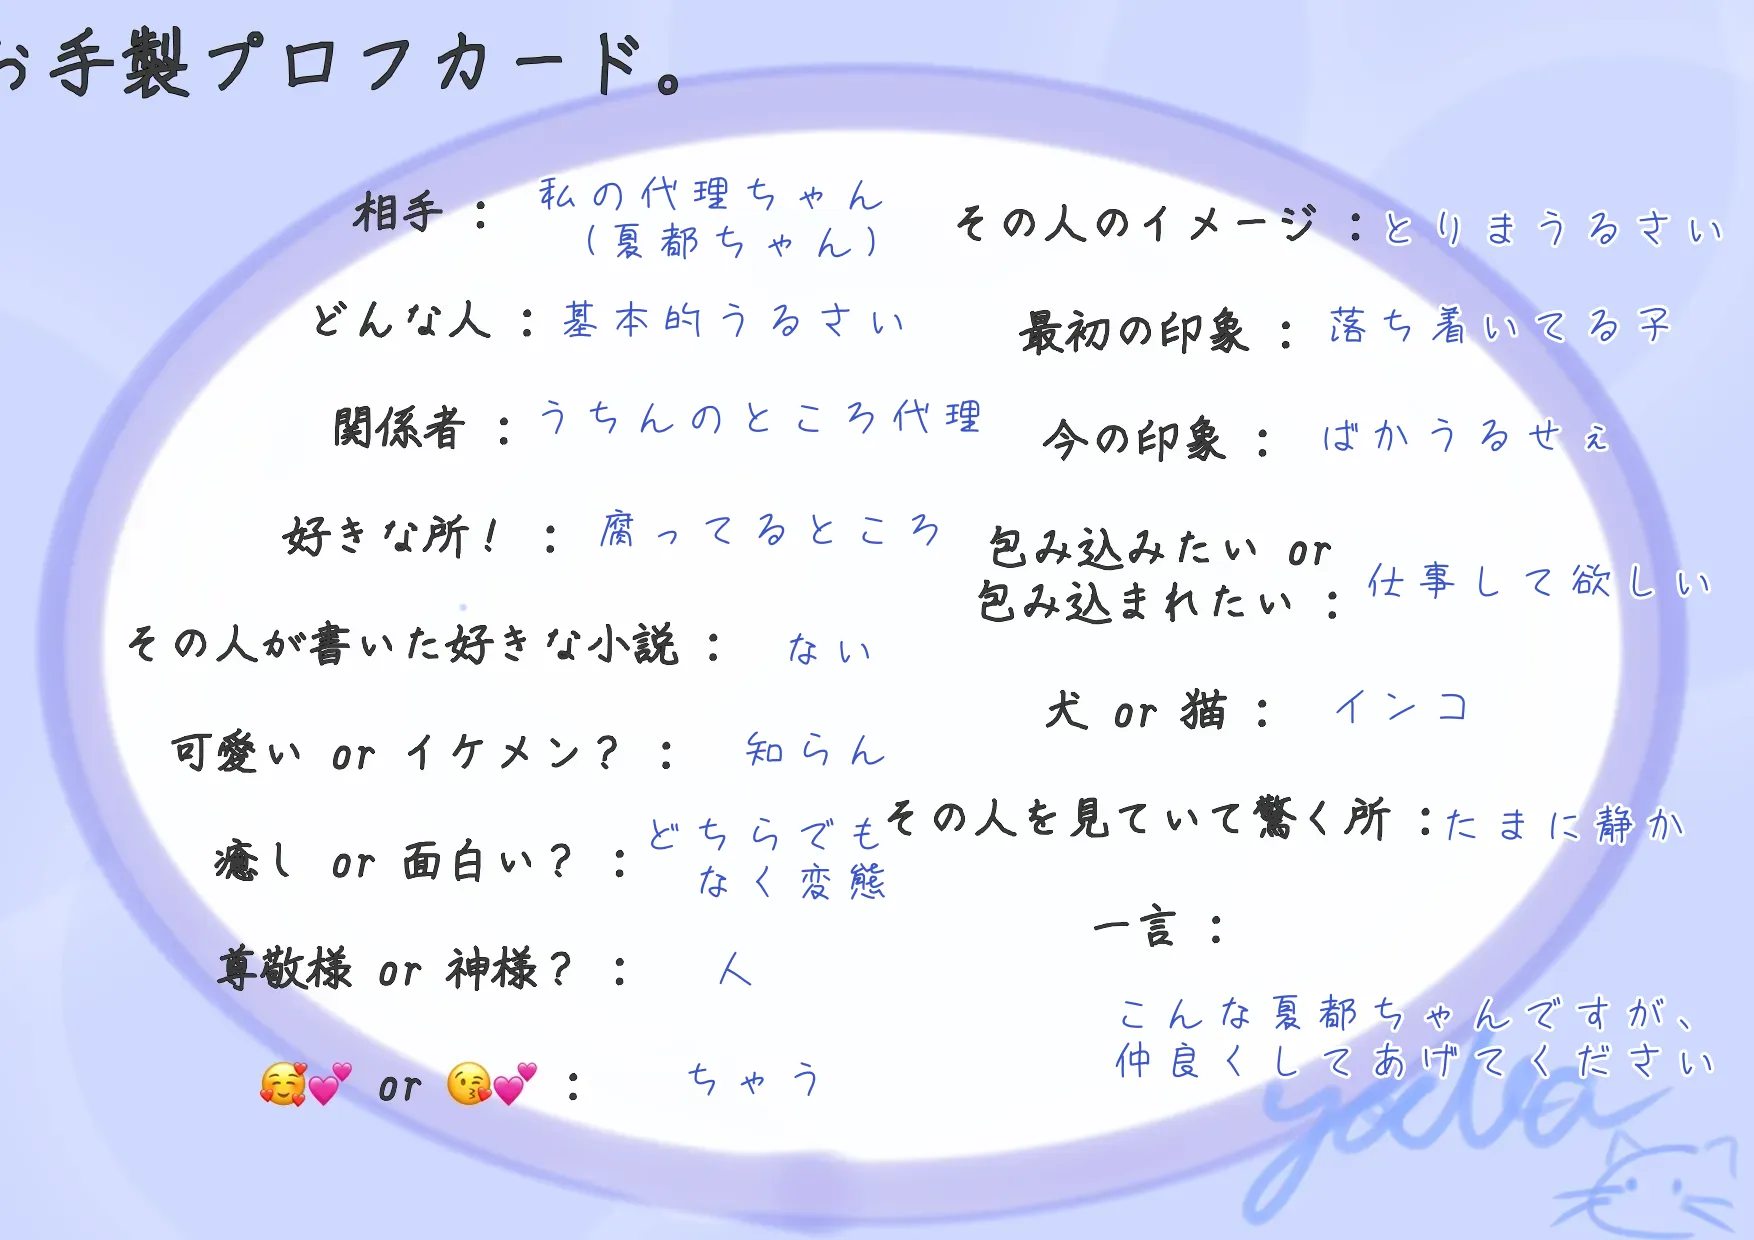 お手製プロフカード。
相手 : 私の代理ちゃん
(夏都ちゃん)
どんな人 : 基本的うるさい
関係者 : うちんのところ代理
好きな所! : 腐ってるところ
その人が書いた好きな小説 : ない
可愛い or イケメン? : 知らん
癒し or 面白い? : どちらでも
なく変態
尊敬様 or 神様? : 人
🥰💕 or 😘💕 : ちゃう
その人のイメージ : とりまうるさい
最初の印象 : 落ち着いてる子
今の印象 : ばかうるせぇ
包み込みたい or
包み込まれたい : 仕事して欲しい
犬 or 猫 : インコ
その人を見ていて驚く所 : たまに静か
一言 :
こんな夏都ちゃんですが、
仲良くしてあげてください